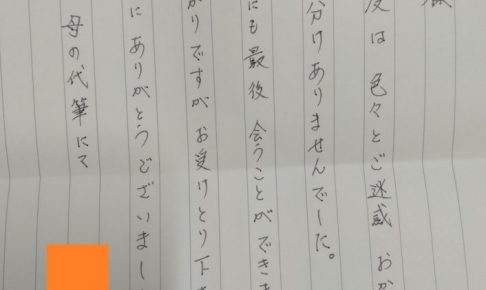 様
度は 色々とご迷惑 おか
分けありませんでした。
にも最後 会うことができま
かりですが お受けとり下さ
に ありがとうございまし
母の代筆にて